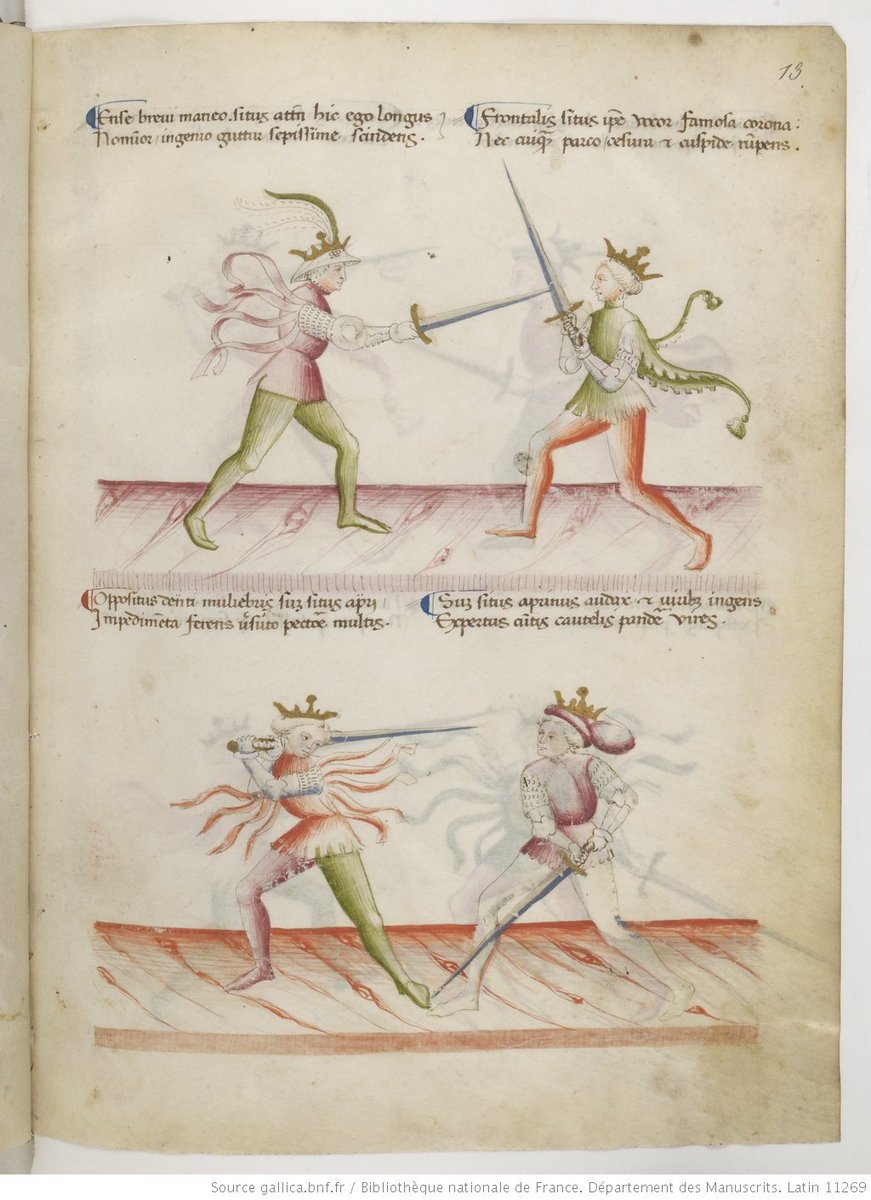 13
Ense breui maneo. situs attñ hic ego longus
Nomĩor / ingenio guttur sepissime scindens.
Frontalis situs ip̃e vocor famosa corona :
Nec cuiq̃ꝫ parco / cesura ⁊ cuspide rũpens.
Oppositus denti muliebris suꝫ situs apri /
Impedimẽta ferens ṽsuto pectoẽ multis.
Suꝫ situs aprinus audax ⁊ viribꝫ ingens /
Expertus cũtis cautelis pandẽ vires.
Source gallica.bnf.fr / Bibliothèque nationale de France. Département des Manuscrits. Latin 11269